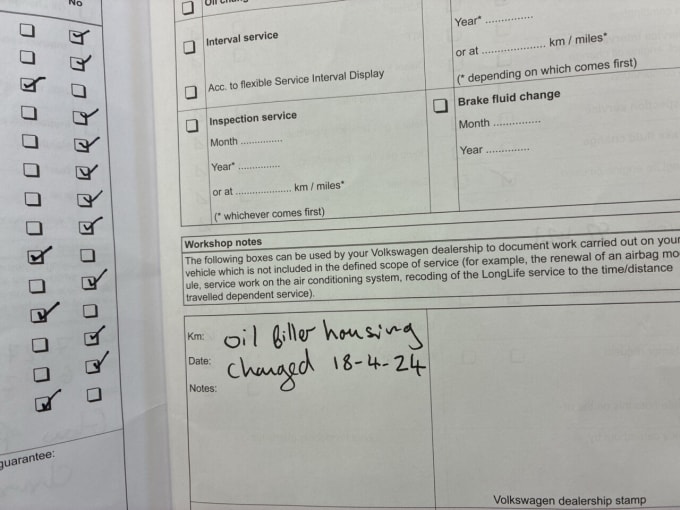 No
Interval service
Acc. to flexible Service Interval Display
Inspection service
Month ..............
Year* ..............
or at .................... km / miles*
(* whichever comes first)
Year* ................
or at ..................... km / miles*
(* depending on which comes first)
Brake fluid change
Month ................
Year ...............
Workshop notes
The following boxes can be used by your Volkswagen dealership to document work carried out on your
vehicle which is not included in the defined scope of service (for example, the renewal of an airbag mo
ule, service work on the air conditioning system, recoding of the LongLife service to the time/distance
travelled dependent service).
Km: oil filler housing
Date: changed 18-4-24
Notes:
guarantee:
Volkswagen dealership stamp